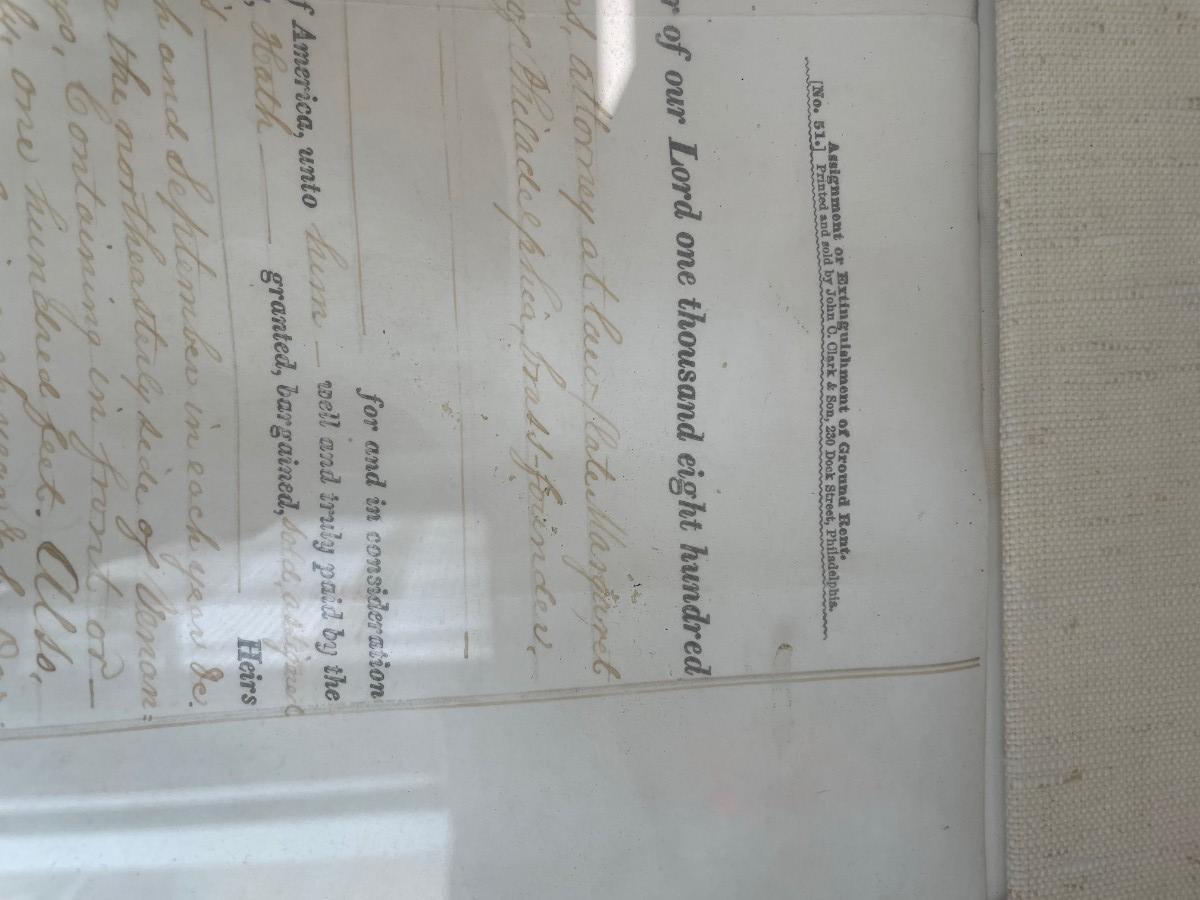 Assignment or Extinguishment of Ground Rent.
[No. 51.] Printed and sold by John C. Clark & Son, 230 Dock Street, Philadelphia.
r of our Lord one thousand eight hundred
attorney at law, late Margaret
Philadelphia, brass-founder,
for and in consideration
f America, unto him well and truly paid by the
hath granted, bargained, sold, assigned
Heirs
h and September in each year &c.
the northeasterly side of Venan=
Containing in front or
one hundred feet. Also,